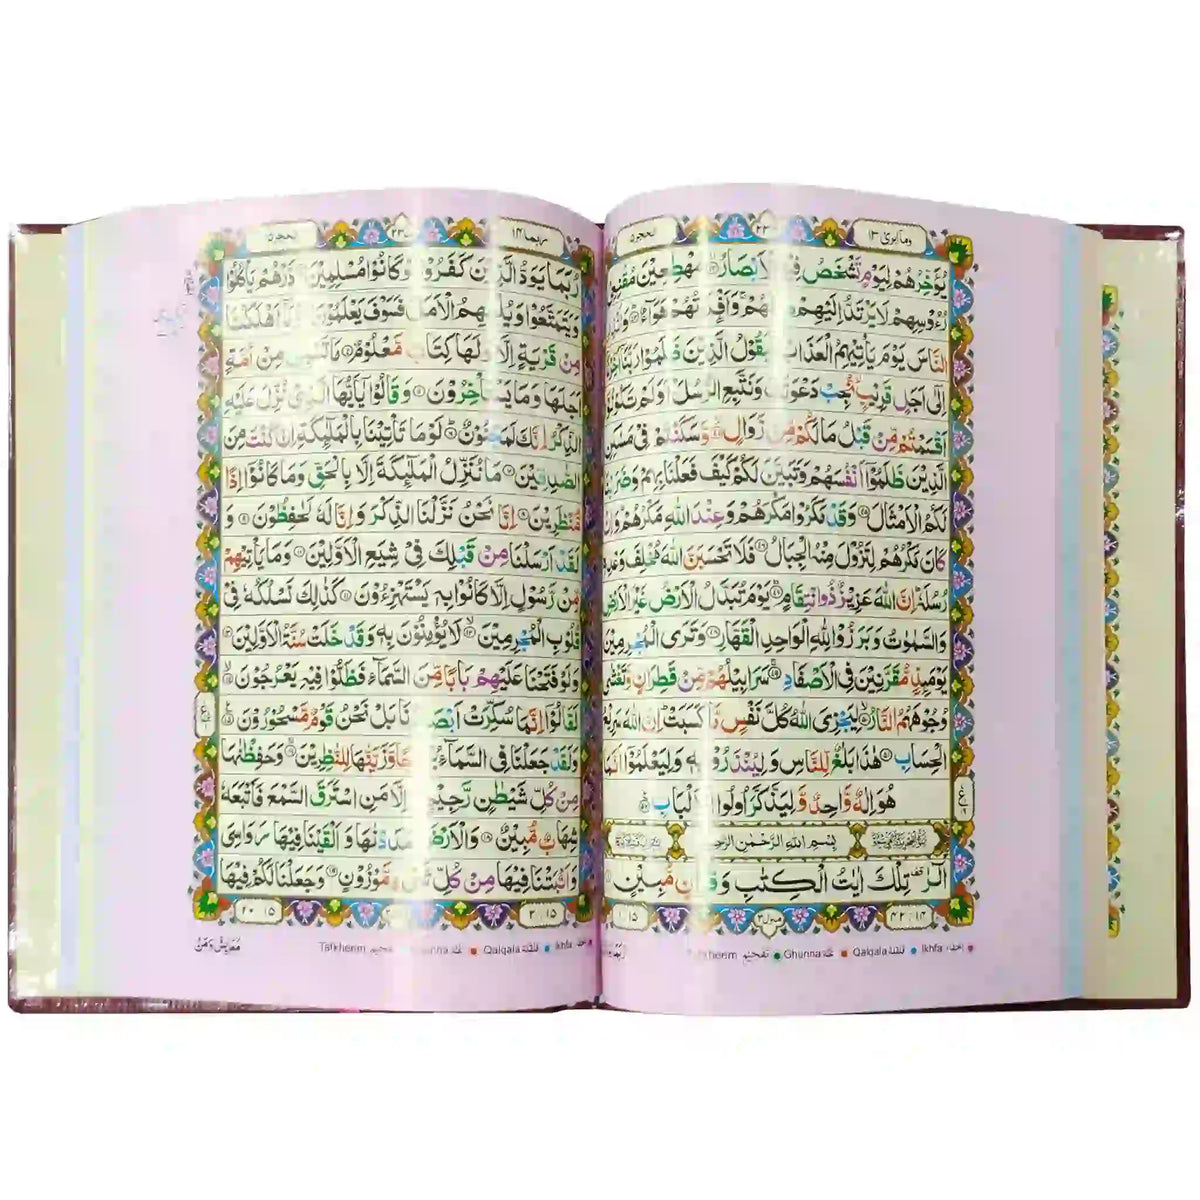 وما ابرئ ١٣
الحجر ١٥
يُؤَخِّرُهُمْ لِيَوْمٍ تَشْخَصُ فِيْهِ الْاَبْصَارُ مُهْطِعِيْنَ مُقْنِعِيْ
رُءُوْسِهِمْ لَا يَرْتَدُّ اِلَيْهِمْ طَرْفُهُمْ وَاَفْـِٕدَتُهُمْ هَوَآءٌ وَاَنْذِرِ
النَّاسَ يَوْمَ يَاْتِيْهِمُ الْعَذَابُ فَيَقُوْلُ الَّذِيْنَ ظَلَمُوْا رَبَّنَآ اَخِّرْنَآ
اِلٰٓى اَجَلٍ قَرِيْبٍ نُّجِبْ دَعْوَتَكَ وَنَتَّبِعِ الرُّسُلَ اَوَلَمْ تَكُوْنُوْٓا
اَقْسَمْتُمْ مِّنْ قَبْلُ مَا لَكُمْ مِّنْ زَوَالٍ وَّسَكَنْتُمْ فِيْ مَسٰكِنِ
الَّذِيْنَ ظَلَمُوْٓا اَنْفُسَهُمْ وَتَبَيَّنَ لَكُمْ كَيْفَ فَعَلْنَا بِهِمْ وَضَرَبْنَا
لَكُمُ الْاَمْثَالَ وَقَدْ مَكَرُوْا مَكْرَهُمْ وَعِنْدَ اللّٰهِ مَكْرُهُمْ وَاِنْ
كَانَ مَكْرُهُمْ لِتَزُوْلَ مِنْهُ الْجِبَالُ فَلَا تَحْسَبَنَّ اللّٰهَ مُخْلِفَ وَعْدِهٖ
رُسُلَهٗ اِنَّ اللّٰهَ عَزِيْزٌ ذُو انْتِقَامٍ يَوْمَ تُبَدَّلُ الْاَرْضُ غَيْرَ الْاَرْضِ
وَالسَّمٰوٰتُ وَبَرَزُوْا لِلّٰهِ الْوَاحِدِ الْقَهَّارِ وَتَرَى الْمُجْرِمِيْنَ
يَوْمَئِذٍ مُّقَرَّنِيْنَ فِي الْاَصْفَادِ سَرَابِيْلُهُمْ مِّنْ قَطِرَانٍ وَّتَغْشٰى
وُجُوْهَهُمُ النَّارُ لِيَجْزِيَ اللّٰهُ كُلَّ نَفْسٍ مَّا كَسَبَتْ اِنَّ اللّٰهَ سَرِيْعُ
الْحِسَابِ هٰذَا بَلٰغٌ لِّلنَّاسِ وَلِيُنْذَرُوْا بِهٖ وَلِيَعْلَمُوْٓا اَنَّمَا
هُوَ اِلٰهٌ وَّاحِدٌ وَّلِيَذَّكَّرَ اُولُوا الْاَلْبَابِ
بِسْمِ اللّٰهِ الرَّحْمٰنِ الرَّحِيْمِ
الٓرٰ تِلْكَ اٰيٰتُ الْكِتٰبِ وَقُرْاٰنٍ مُّبِيْنٍ
منزل ٣
Ikhfa إخفاء Qalqala قلقلة Ghunna غنه Tafkheem تفخيم
ربما ١٤
الحجر ١٥
رُبَمَا يَوَدُّ الَّذِيْنَ كَفَرُوْا لَوْ كَانُوْا مُسْلِمِيْنَ ذَرْهُمْ يَاْكُلُوْا
وَيَتَمَتَّعُوْا وَيُلْهِهِمُ الْاَمَلُ فَسَوْفَ يَعْلَمُوْنَ وَمَآ اَهْلَكْنَا
مِنْ قَرْيَةٍ اِلَّا وَلَهَا كِتَابٌ مَّعْلُوْمٌ مَا تَسْبِقُ مِنْ اُمَّةٍ
اَجَلَهَا وَمَا يَسْتَاْخِرُوْنَ وَقَالُوْا يٰٓاَيُّهَا الَّذِيْ نُزِّلَ عَلَيْهِ
الذِّكْرُ اِنَّكَ لَمَجْنُوْنٌ لَوْ مَا تَاْتِيْنَا بِالْمَلٰٓئِكَةِ اِنْ كُنْتَ مِنَ
الصّٰدِقِيْنَ مَا نُنَزِّلُ الْمَلٰٓئِكَةَ اِلَّا بِالْحَقِّ وَمَا كَانُوْٓا اِذًا
مُّنْظَرِيْنَ اِنَّا نَحْنُ نَزَّلْنَا الذِّكْرَ وَاِنَّا لَهٗ لَحٰفِظُوْنَ وَ
لَقَدْ اَرْسَلْنَا مِنْ قَبْلِكَ فِيْ شِيَعِ الْاَوَّلِيْنَ وَمَا يَاْتِيْهِمْ
مِّنْ رَّسُوْلٍ اِلَّا كَانُوْا بِهٖ يَسْتَهْزِءُوْنَ كَذٰلِكَ نَسْلُكُهٗ فِيْ
قُلُوْبِ الْمُجْرِمِيْنَ لَا يُؤْمِنُوْنَ بِهٖ وَقَدْ خَلَتْ سُنَّةُ الْاَوَّلِيْنَ
وَلَوْ فَتَحْنَا عَلَيْهِمْ بَابًا مِّنَ السَّمَآءِ فَظَلُّوْا فِيْهِ يَعْرُجُوْنَ
لَقَالُوْٓا اِنَّمَا سُكِّرَتْ اَبْصَارُنَا بَلْ نَحْنُ قَوْمٌ مَّسْحُوْرُوْنَ
وَلَقَدْ جَعَلْنَا فِي السَّمَآءِ بُرُوْجًا وَّزَيَّنّٰهَا لِلنّٰظِرِيْنَ وَحَفِظْنٰهَا
مِنْ كُلِّ شَيْطٰنٍ رَّجِيْمٍ اِلَّا مَنِ اسْتَرَقَ السَّمْعَ فَاَتْبَعَهٗ
شِهَابٌ مُّبِيْنٌ وَالْاَرْضَ مَدَدْنٰهَا وَاَلْقَيْنَا فِيْهَا رَوَاسِيَ
وَاَنْۢبَتْنَا فِيْهَا مِنْ كُلِّ شَيْءٍ مَّوْزُوْنٍ وَجَعَلْنَا لَكُمْ فِيْهَا
Ikhfa إخفاء Qalqala قلقلة Ghunna غنه Tafkheem تفخيم
مَعَايِشَ وَمَنْ